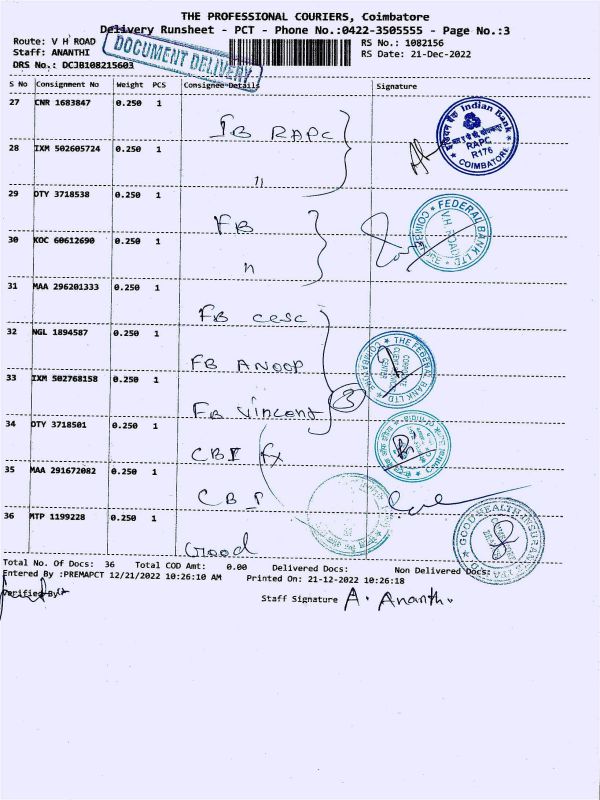 THE PROFESSIONAL COURIERS, Coimbatore
Delivery Runsheet - PCT - Phone No.:0422-3505555 - Page No.:3
Route: V H ROAD
Staff: ANANTHI
DRS No.: DCJB108215603
DOCUMENT DELIVERY
RS No.: 1082156
RS Date: 21-Dec-2022
S No Consignment No Weight PCS Consignee Details Signature
27 CNR 1683847 0.250 1
IB RAPC
Indian Bank
RAPC
R176
COIMBATORE
28 IXM 502605724 0.250 1
11
29 DTY 3718538 0.250 1
FB
FEDERAL BANK LTD
V.H ROAD
COIMBATORE
30 KOC 60612690 0.250 1
11
31 MAA 296201333 0.250 1
FB cesc
32 NGL 1894587 0.250 1
FB ANOOP
THE FEDERAL BANK LTD
COIMBATORE
33 IXM 502768158 0.250 1
FB Vincent
3
34 DTY 3718501 0.250 1
CBI fx
Central
35 MAA 291672082 0.250 1
CBI
36 MTP 1199228 0.250 1
Good
GOOD HEALTH INSURANCE
Total No. Of Docs: 36 Total COD Amt: 0.00 Delivered Docs: Non Delivered Docs:
Entered By :PREMAPCT 12/21/2022 10:26:10 AM Printed On: 21-12-2022 10:26:18
Verified By
Staff Signature A. Ananthi.